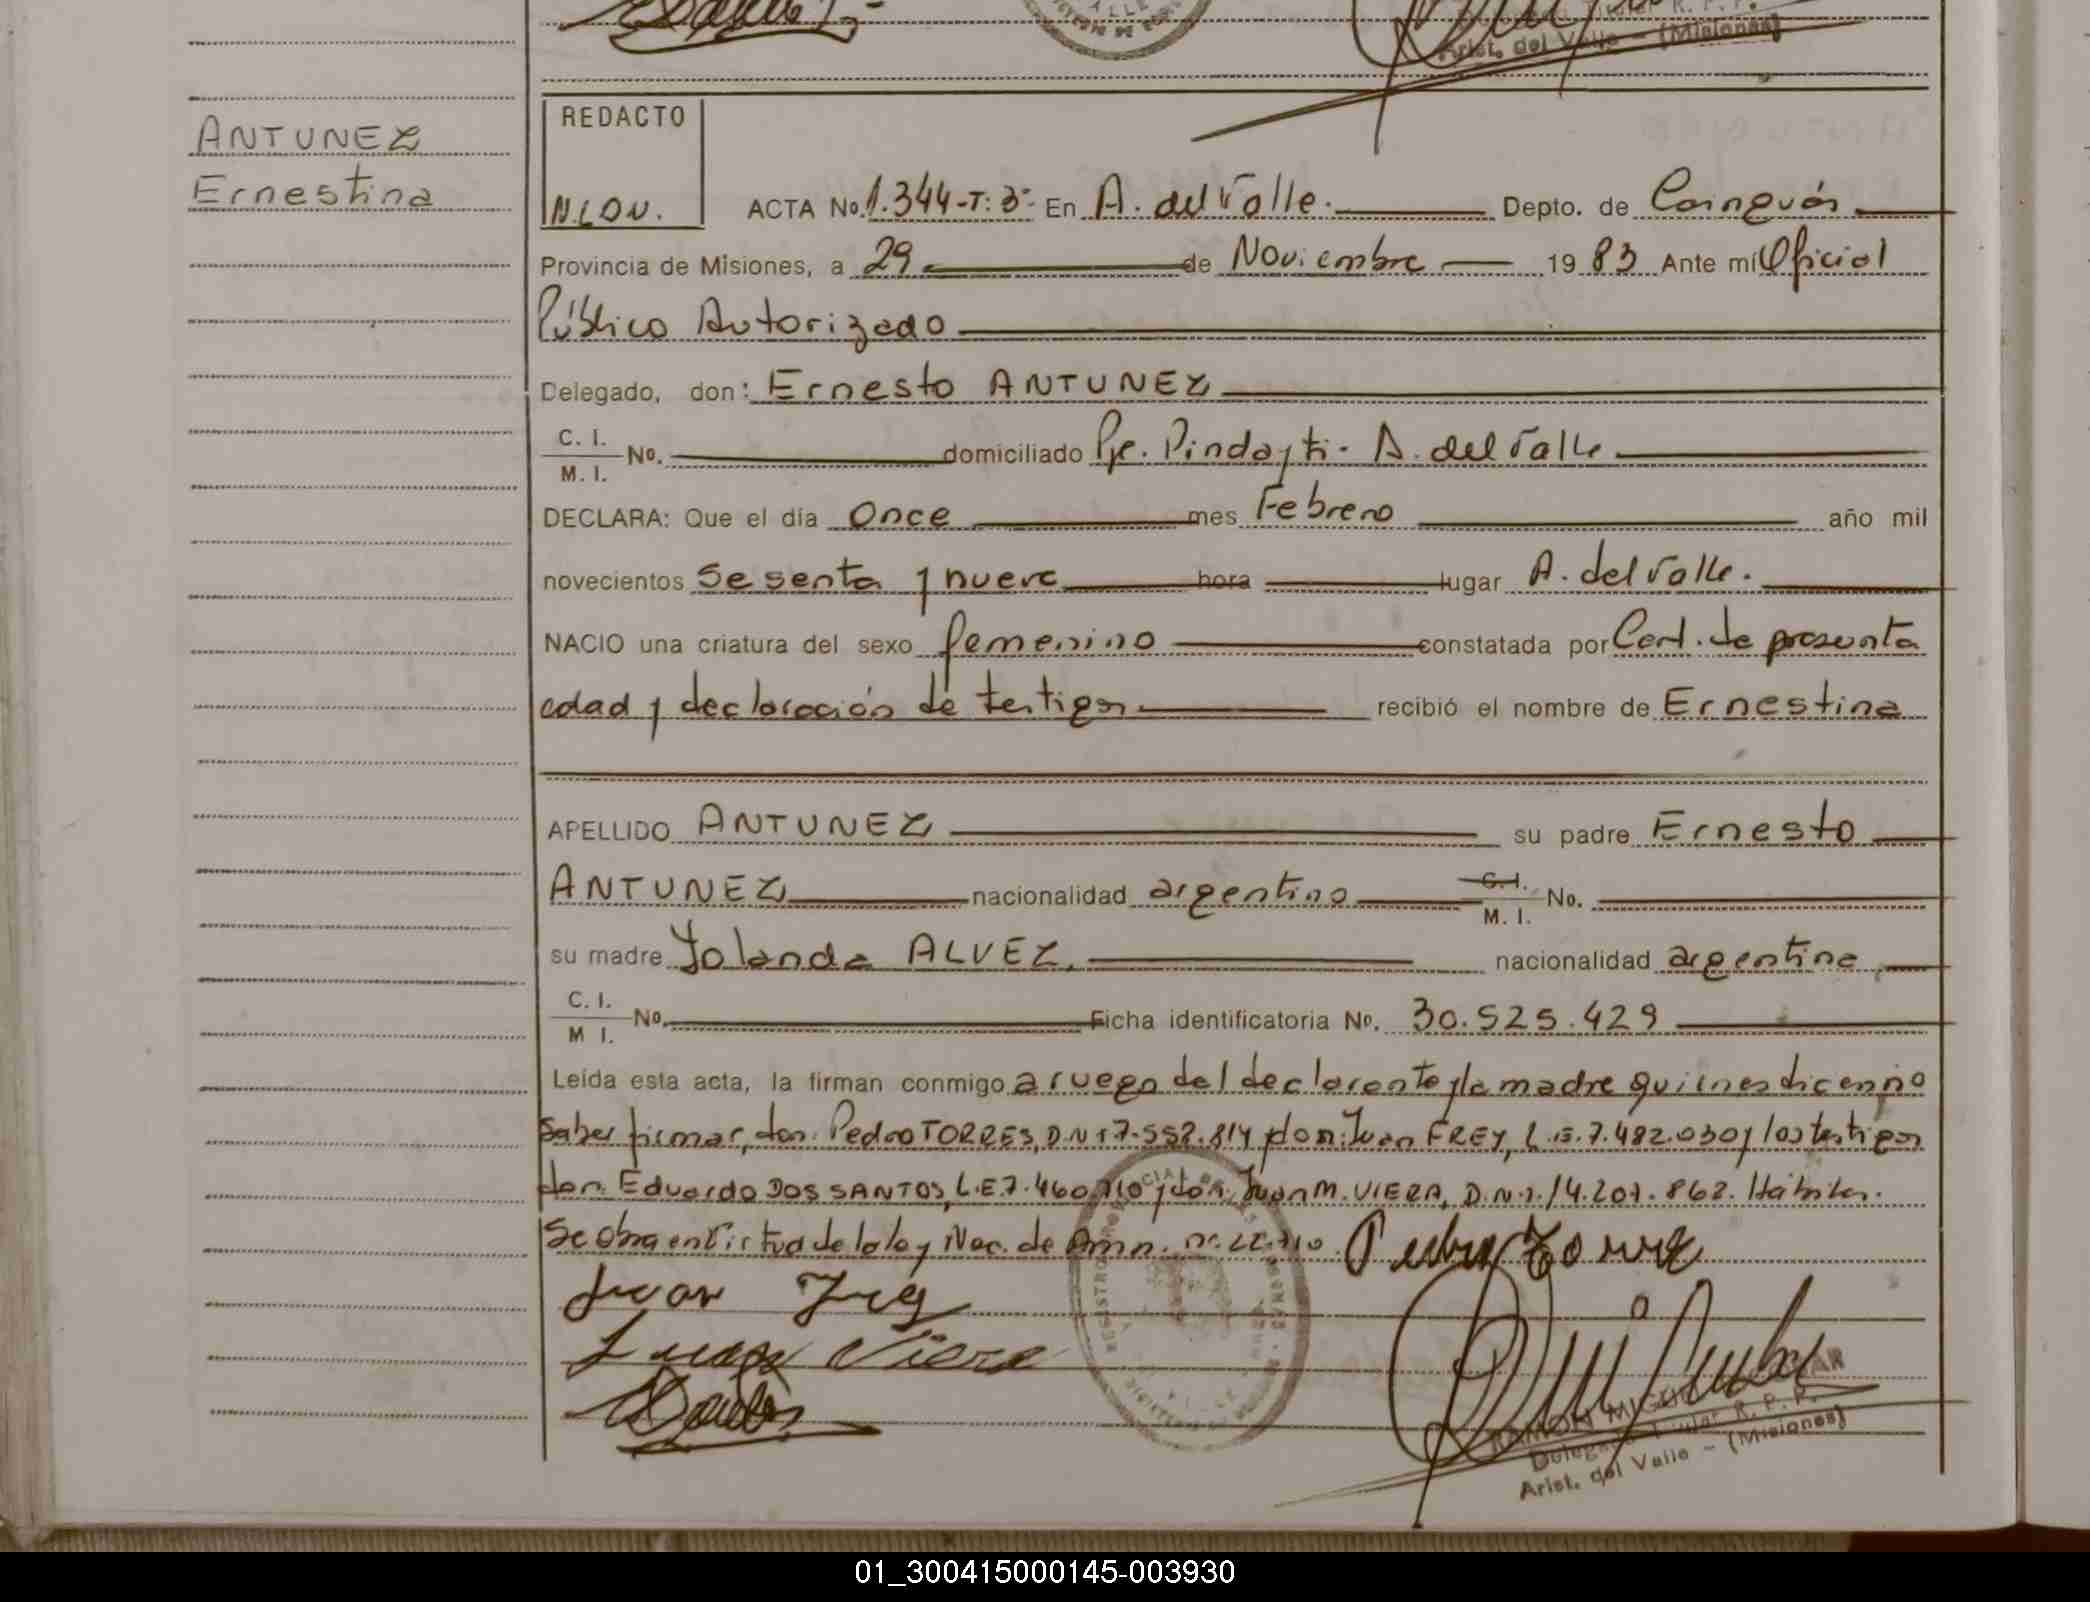 Arist. del Valle - (Misiones)
ANTUNEZ
Ernestina
REDACTO
N.LON.
ACTA No. 1.344-T: 3º En A. del Valle. Depto. de Cainguás
Provincia de Misiones, a 29 de Noviembre 19 83 Ante mí Oficial
Público Autorizado
Delegado, don: Ernesto ANTUNEZ
C. I.
M. I. No. domiciliado Pje. Pindayti - A. del Valle
DECLARA: Que el día Once mes Febrero año mil
novecientos sesenta y nueve hora lugar A. del Valle.
NACIO una criatura del sexo femenino constatada por Cert. de presunta
edad y declaración de testigos recibió el nombre de Ernestina
APELLIDO ANTUNEZ su padre Ernesto
ANTUNEZ nacionalidad argentino C.I. M. I. No.
su madre Yolanda ALVEZ. nacionalidad argentina
C. I.
M I. No. Ficha identificatoria No. 30.525.429
Leída esta acta, la firman conmigo a ruego del declarante y la madre quienes dicen no
saber firmar, don: Pedro TORRES, D.N.I 7.552.814 y don: Juan FREY, L.E. 7.482.030 y los testigos
don: Eduardo DOS SANTOS, L.E. 7.460.710 y don: Juan M. VIERA, D.N.I. 14.207.862. Hábiles.
Se obra en virtud de la ley Nac. de Amn. nº 22.710
Pedro Torre
Juan Frey
Juan Viera
RAMON MIGUEL
Delegado Titular R. P. P.
Arist. del Valle - (Misiones)
01_300415000145-003930